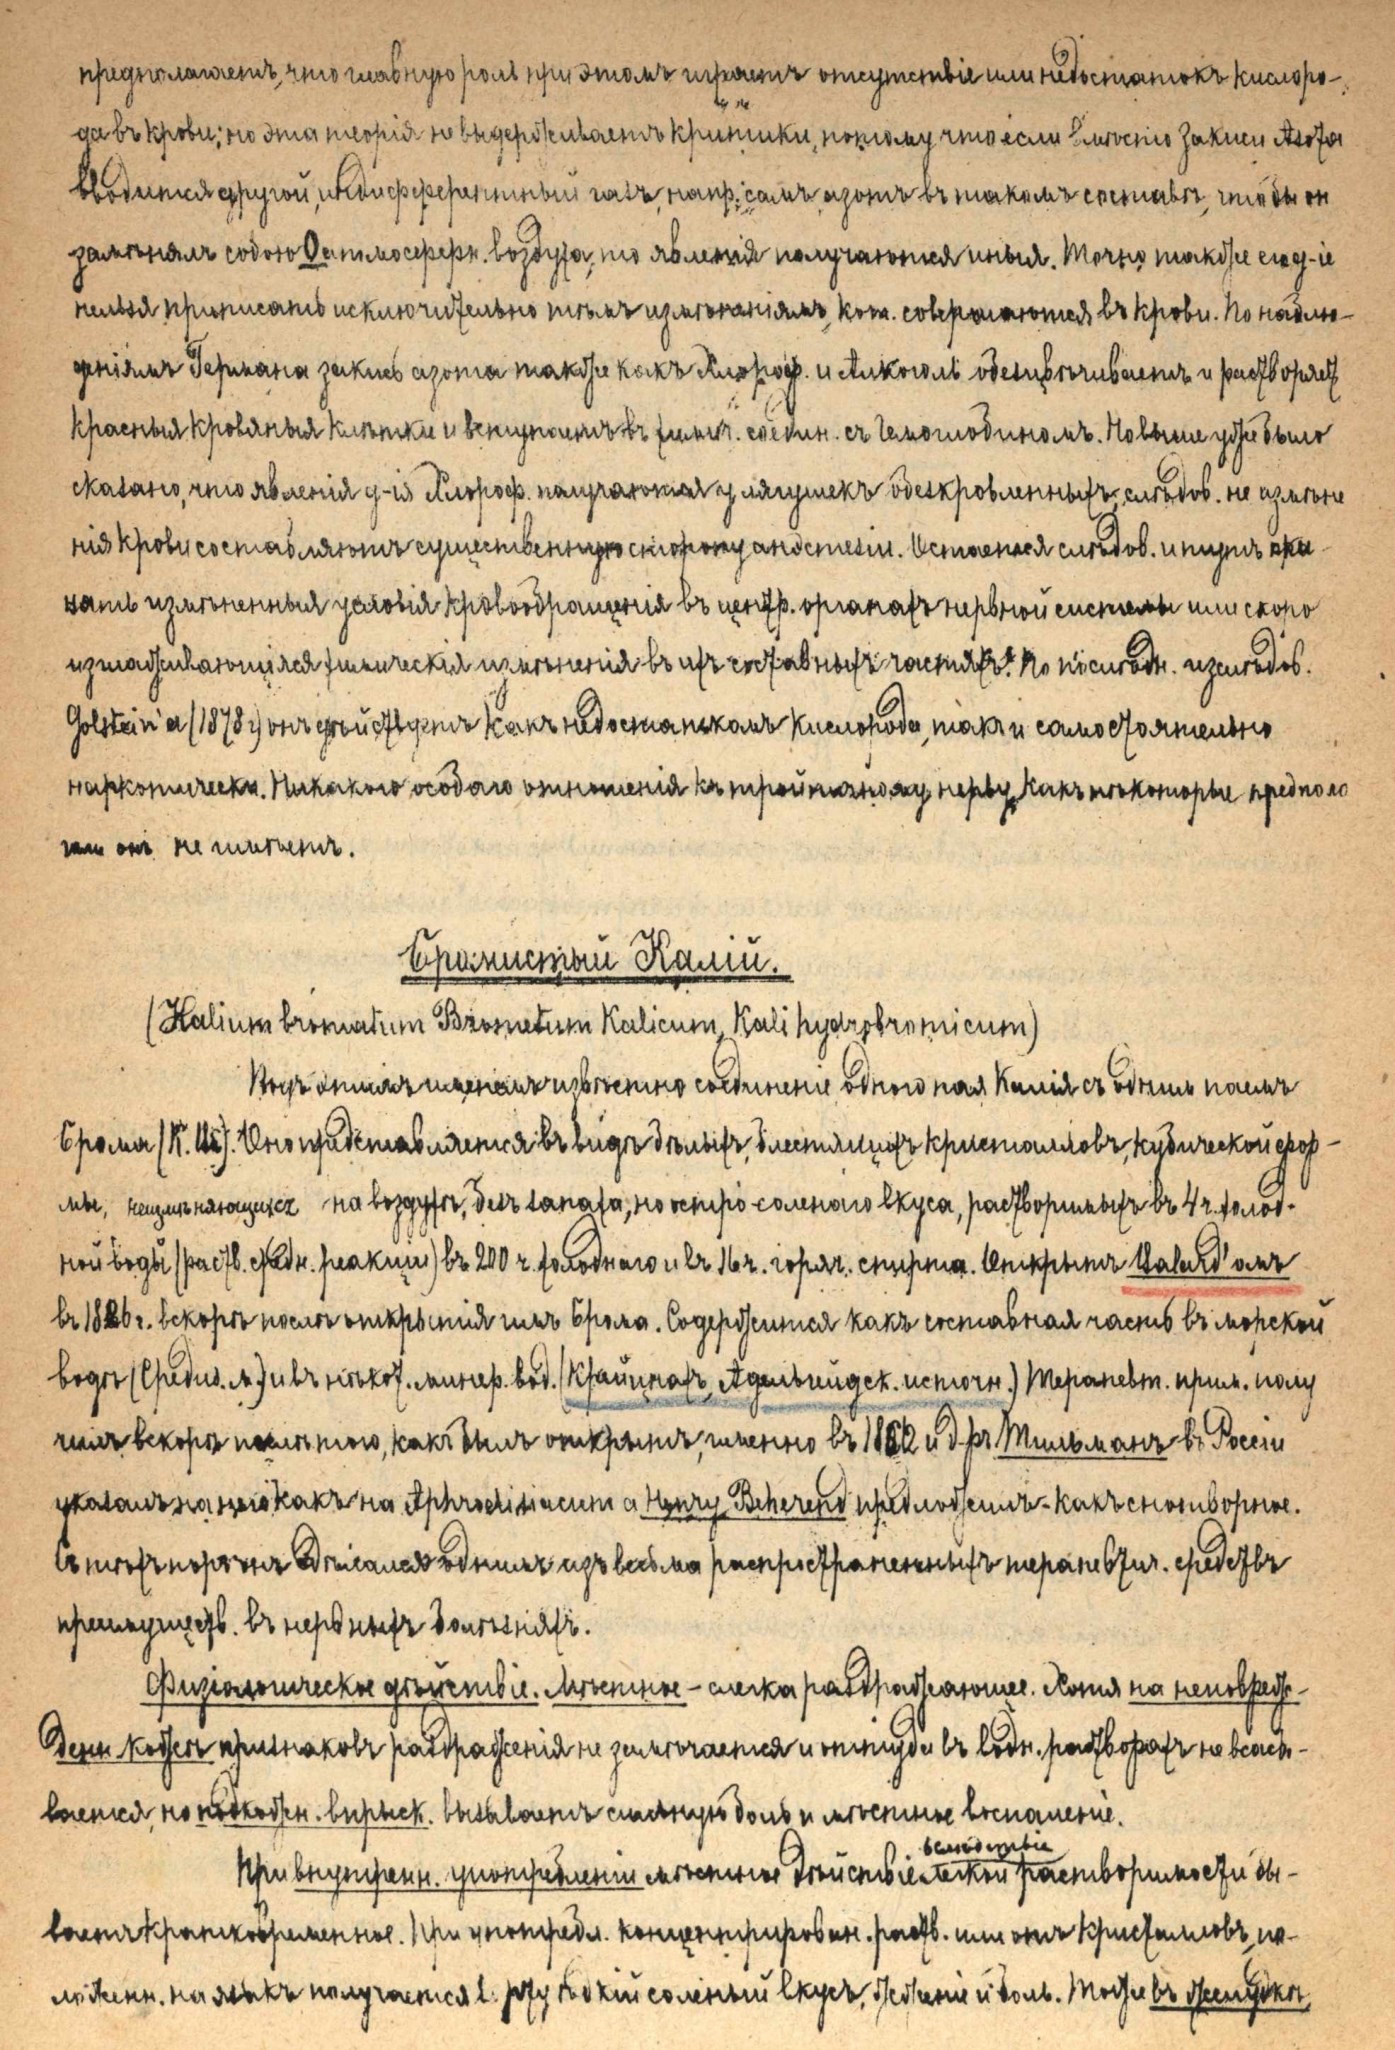 предполагаетъ, что главную роль при этомъ играетъ отсутствіе или недостатокъ кислоро-
да въ крови; но эта теорія не выдерживаетъ критики, потому что если вмѣсто Закиси Азота
вводится другой, индифферентный газъ, напр. самъ азотъ въ такомъ составѣ, чтобы он
замѣнялъ собою О атмосферн. воздуха, то явленія получаются иныя. Точно также
нельзя приписать исключительно тѣмъ измѣненіямъ, кот. совершаются въ крови. По наблю-
деніямъ Германа закись азота также какъ Хлороф. и Алкоголь обезцвѣчиваетъ и растворяет
красныя кровяныя клѣтки и вступаетъ въ химич. соедин. съ Гемоглобиномъ. Но выше уже было
сказано, что явленія д-ія Хлороф. получаются у лягушекъ обезкровленныхъ, слѣдов. не измѣне
нія крови составляютъ существенную сторону анэстезіи. Остается слѣдов. и тутъ иска-
зать измѣненныя условія кровообращенія въ центр. органахъ нервной системы или скоро
изглаживающіяся химическія измѣненія въ ихъ составныхъ частяхъ. По послѣдн. изслѣдов.
Golstein'a (1878 г) онъ дѣйствуетъ какъ недостаткомъ кислорода, такъ и самостоятельно
наркотически. Никакого особаго отношенія къ тройничному нерву, какъ нѣкоторые предпола
гали онъ не имѣетъ.
Бромистый Калій.
(Kalium bromatum Brometum Kalicum, Kali hydrobromicum)
Подъ этимъ именемъ извѣстно соединеніе одного пая Калія съ однимъ паемъ
Брома (К. Br). Оно представляется въ видѣ бѣлыхъ, блестящихъ кристалловъ, кубической фор-
мы, неизмѣняющихся на воздухѣ, безъ запаха, но остро-соленаго вкуса, растворимыхъ въ 4 ч. холод-
ной воды (раств. средн. реакціи) въ 200 ч. холоднаго и въ 16 ч. горяч. спирта. Открытъ Balard'омъ
въ 1826 г. вскорѣ послѣ открытія имъ Брома. Содержится какъ составная часть въ морской
водѣ (Средиз. м.) и въ нѣкот. минер. вод. (Крайцнахъ, Адельгейдск. источн.) Терапевт. прим. полу
чилъ вскорѣ послѣ того, какъ былъ открытъ, именно въ и д-ръ Тильманъ въ Россіи
указалъ на него какъ на Aphrodisiacum а Henry Beherend предложилъ - какъ снотворное.
Съ тѣхъ поръ онъ сдѣлался однимъ изъ весьма распространенныхъ терапевтич. средствъ
преимуществ. въ нервныхъ болѣзняхъ.
Физіологическое дѣйствіе. Мѣстное - слегка раздражающее. Хотя на неповреж-
денн. кожѣ признаковъ раздраженія не замѣчается и оттуда въ водн. растворахъ не всасы-
вается, но подкожн. впрыск. вызываетъ сильную боль и мѣстное воспаленіе.
При внутренн. употребленіи мѣстное дѣйствіе вслѣдствіе легкой растворимости бы-
ваетъ кратковременное. При употребл. концентрирован. раств. или отъ кристалловъ, по-
ложенн. на языкъ получается в. рту ѣдкій соленый вкусъ, жженіе и боль. Тоже въ желудкѣ,